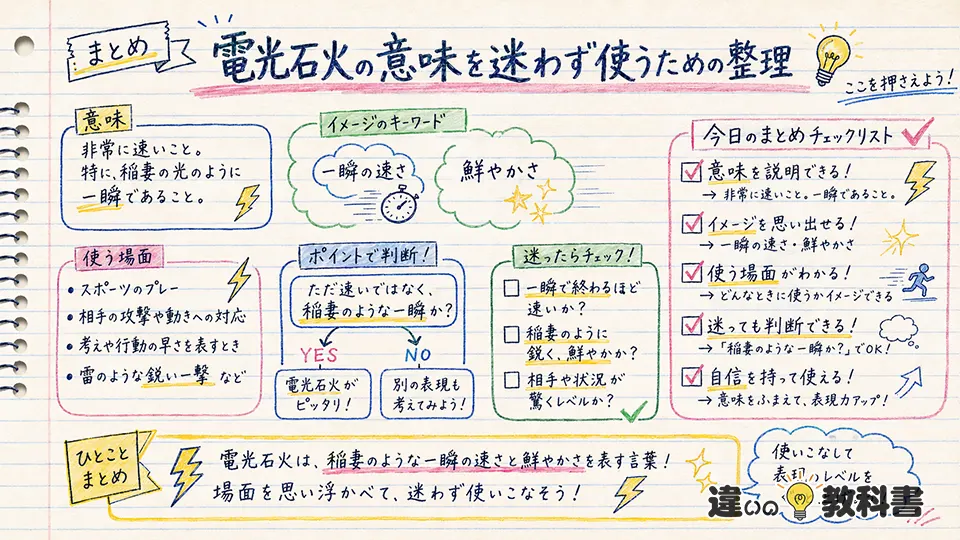 まとめ
電光石火の意味を迷わず使うための整理
ここを押さえよう!
意味
非常に速いこと。
特に、稲妻の光のように
一瞬であること。
イメージのキーワード
一瞬の速さ
鮮やかさ
使う場面
• スポーツのプレー
• 相手の攻撃や動きへの対応
• 考えや行動の早さを表すとき
• 雷のような鋭い一撃 など
ポイントで判断!
ただ速いではなく、
稲妻のような一瞬か?
YES
NO
電光石火が
ピッタリ!
別の表現も
考えてみよう!
迷ったらチェック!
一瞬で終わるほど
速いか?
稲妻のように
鋭く、鮮やかか?
相手や状況が
驚くレベルか?
今日のまとめチェックリスト
意味を説明できる!
→ 非常に速いこと。一瞬であること。
イメージを思い出せる!
→ 一瞬の速さ・鮮やかさ
使う場面がわかる!
→ どんなときに使うかイメージできる
迷っても判断できる!
→「稲妻のような一瞬か?」でOK!
自信を持って使える!
→ 意味をふまえて、表現力アップ!
ひとこと
まとめ
電光石火は、稲妻のような一瞬の速さと鮮やかさを表す言葉!
場面を思い浮かべて、迷わず使いこなそう!
使いこなして
表現のレベルを
違いの教科書